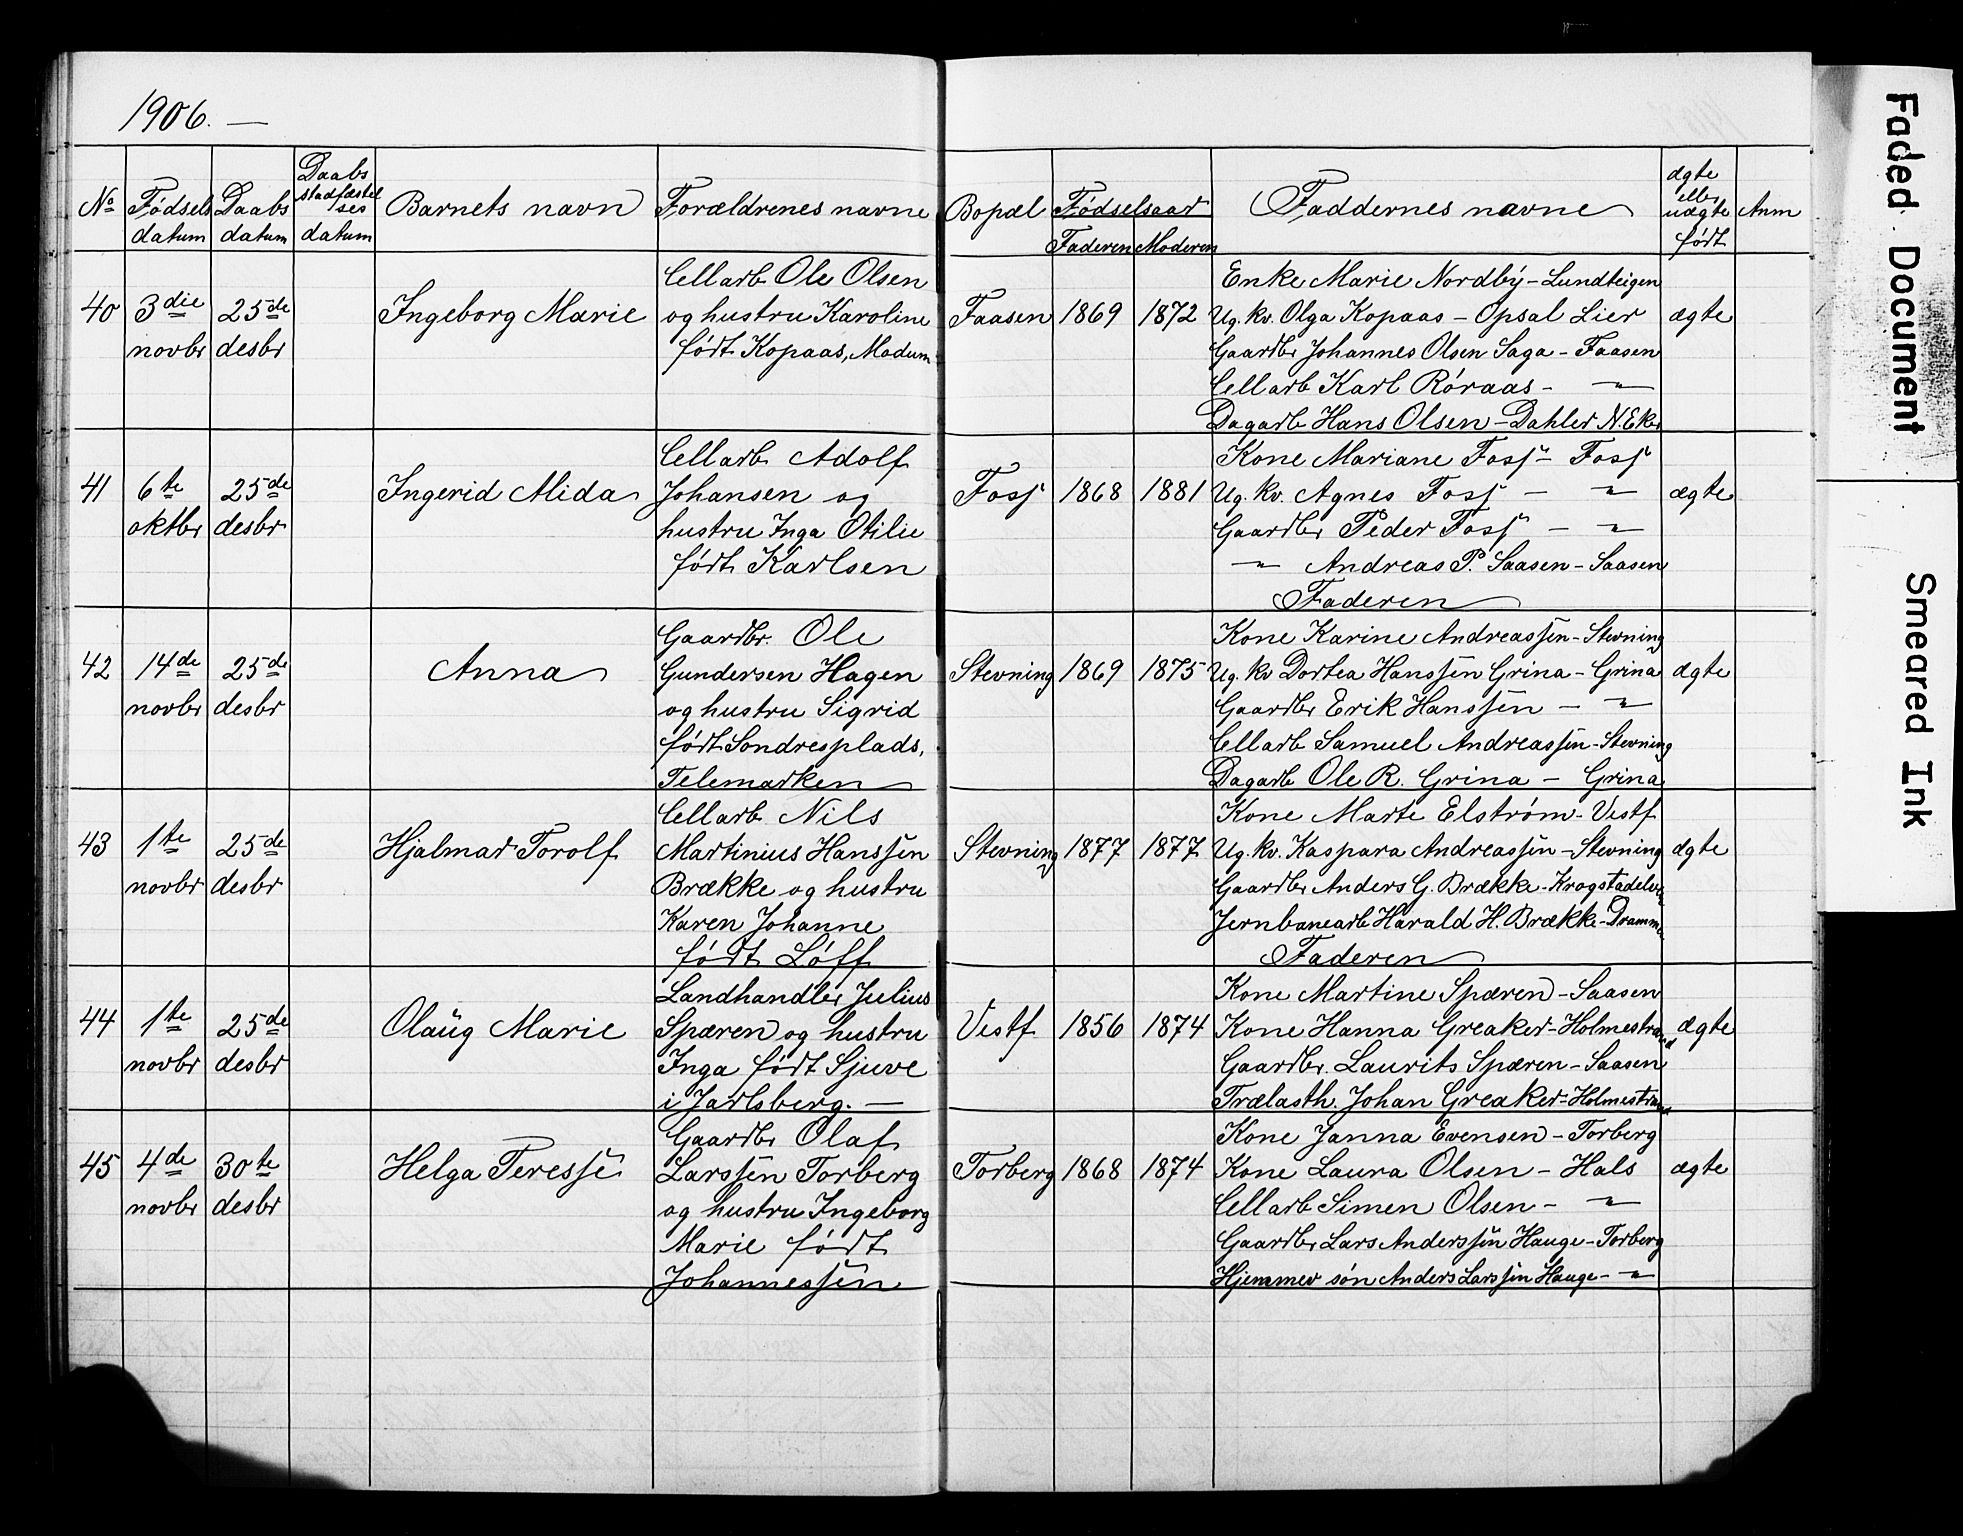 1906. —
№ Fødsels datum Daabs datum Daabs stadfæstelses datum Barnets navn Forældrenes navne Bopæl Fødselsaar Faderen Moderen Faddernes navne ægte eller uægte født Anm
40 3die novbr 25de desbr Ingeborg Marie
Cellarb Ole Olsen
og hustru Karoline
født Kopaas, Modum
Faasen 1869 1872
Enke Marie Nordby – Lundteigen
Ug. kv. Olga Kopaas – Opsal Lier
Gaardbr Johannes Olsen Saga – Faasen
Cellarb Karl Róraas – –"–
Dagarb Hans Olsen – Dahler N. Eker
ægte
41 6te oktbr 25de desbr Ingerid Alida
Cellarb Adolf
Johansen og
hustru Inga Otilie
født Karlsen
Foss 1868 1881
Kone Mariane Foss – Foss
Ug. kv. Agnes Foss – –"–
Gaardbr Peder Foss – –"–
–"– Andreas P. Saasen – Saasen
Faderen
ægte
42 14de novbr 25de desbr Anna
Gaardbr. Ole
Gundersen Hagen
og hustru Sigrid
født Sondresplads,
Telemarken
Stevning 1869 1875
Kone Karine Andreassen – Stevning
Ug. kv Dortea Hanssen Grina – Grina
Gaardbr Erik Hanssen – –"–
Cellarb Samuel Andreassen – Stevning
Dagarb Ole R. Grina – Grina
ægte
43 1te novbr 25de desbr Hjalmar Torolf
Cellarb Nils
Martinius Hanssen
Brække og hustru
Karen Johanne
født Lóff
Stevning 1877 1877
Kone Marte Elstrøm – Vestf
Ug. kv. Kaspara Andreassen – Stevning
Gaardbr Anders G. Brække – Krogstadelven
Jernbanearb Harald H. Brække – Drammen
Faderen
ægte
44 1te novbr 25de desbr Olaug Marie
Landhandler Julius
Spæren og hustru
Inga født Sjuve
i Jarlsberg. —
Vestf 1856 1874
Kone Martine Spæren – Saasen
Kone Hanna Greaker – Holmestrand
Gaardbr. Laurits Spæren – Saasen
Trælasth. Johan Greaker – Holmestrand
ægte
45 4de novbr 30te desbr Helga Teresse
Gaardbr Olaf
Larssen Torberg
og hustru Ingeborg
Marie født
Johannessen
Torberg 1868 1874
Kone Janna Evensen – Torberg
Kone Laura Olsen – Hals
Cellarb Simen Olsen – –"–
Gaardbr Lars Anderssen Hauge – Torberg
Hjemmev søn Anders Larssen Hauge – –"–
ægte
Faded Document
Smeared Ink